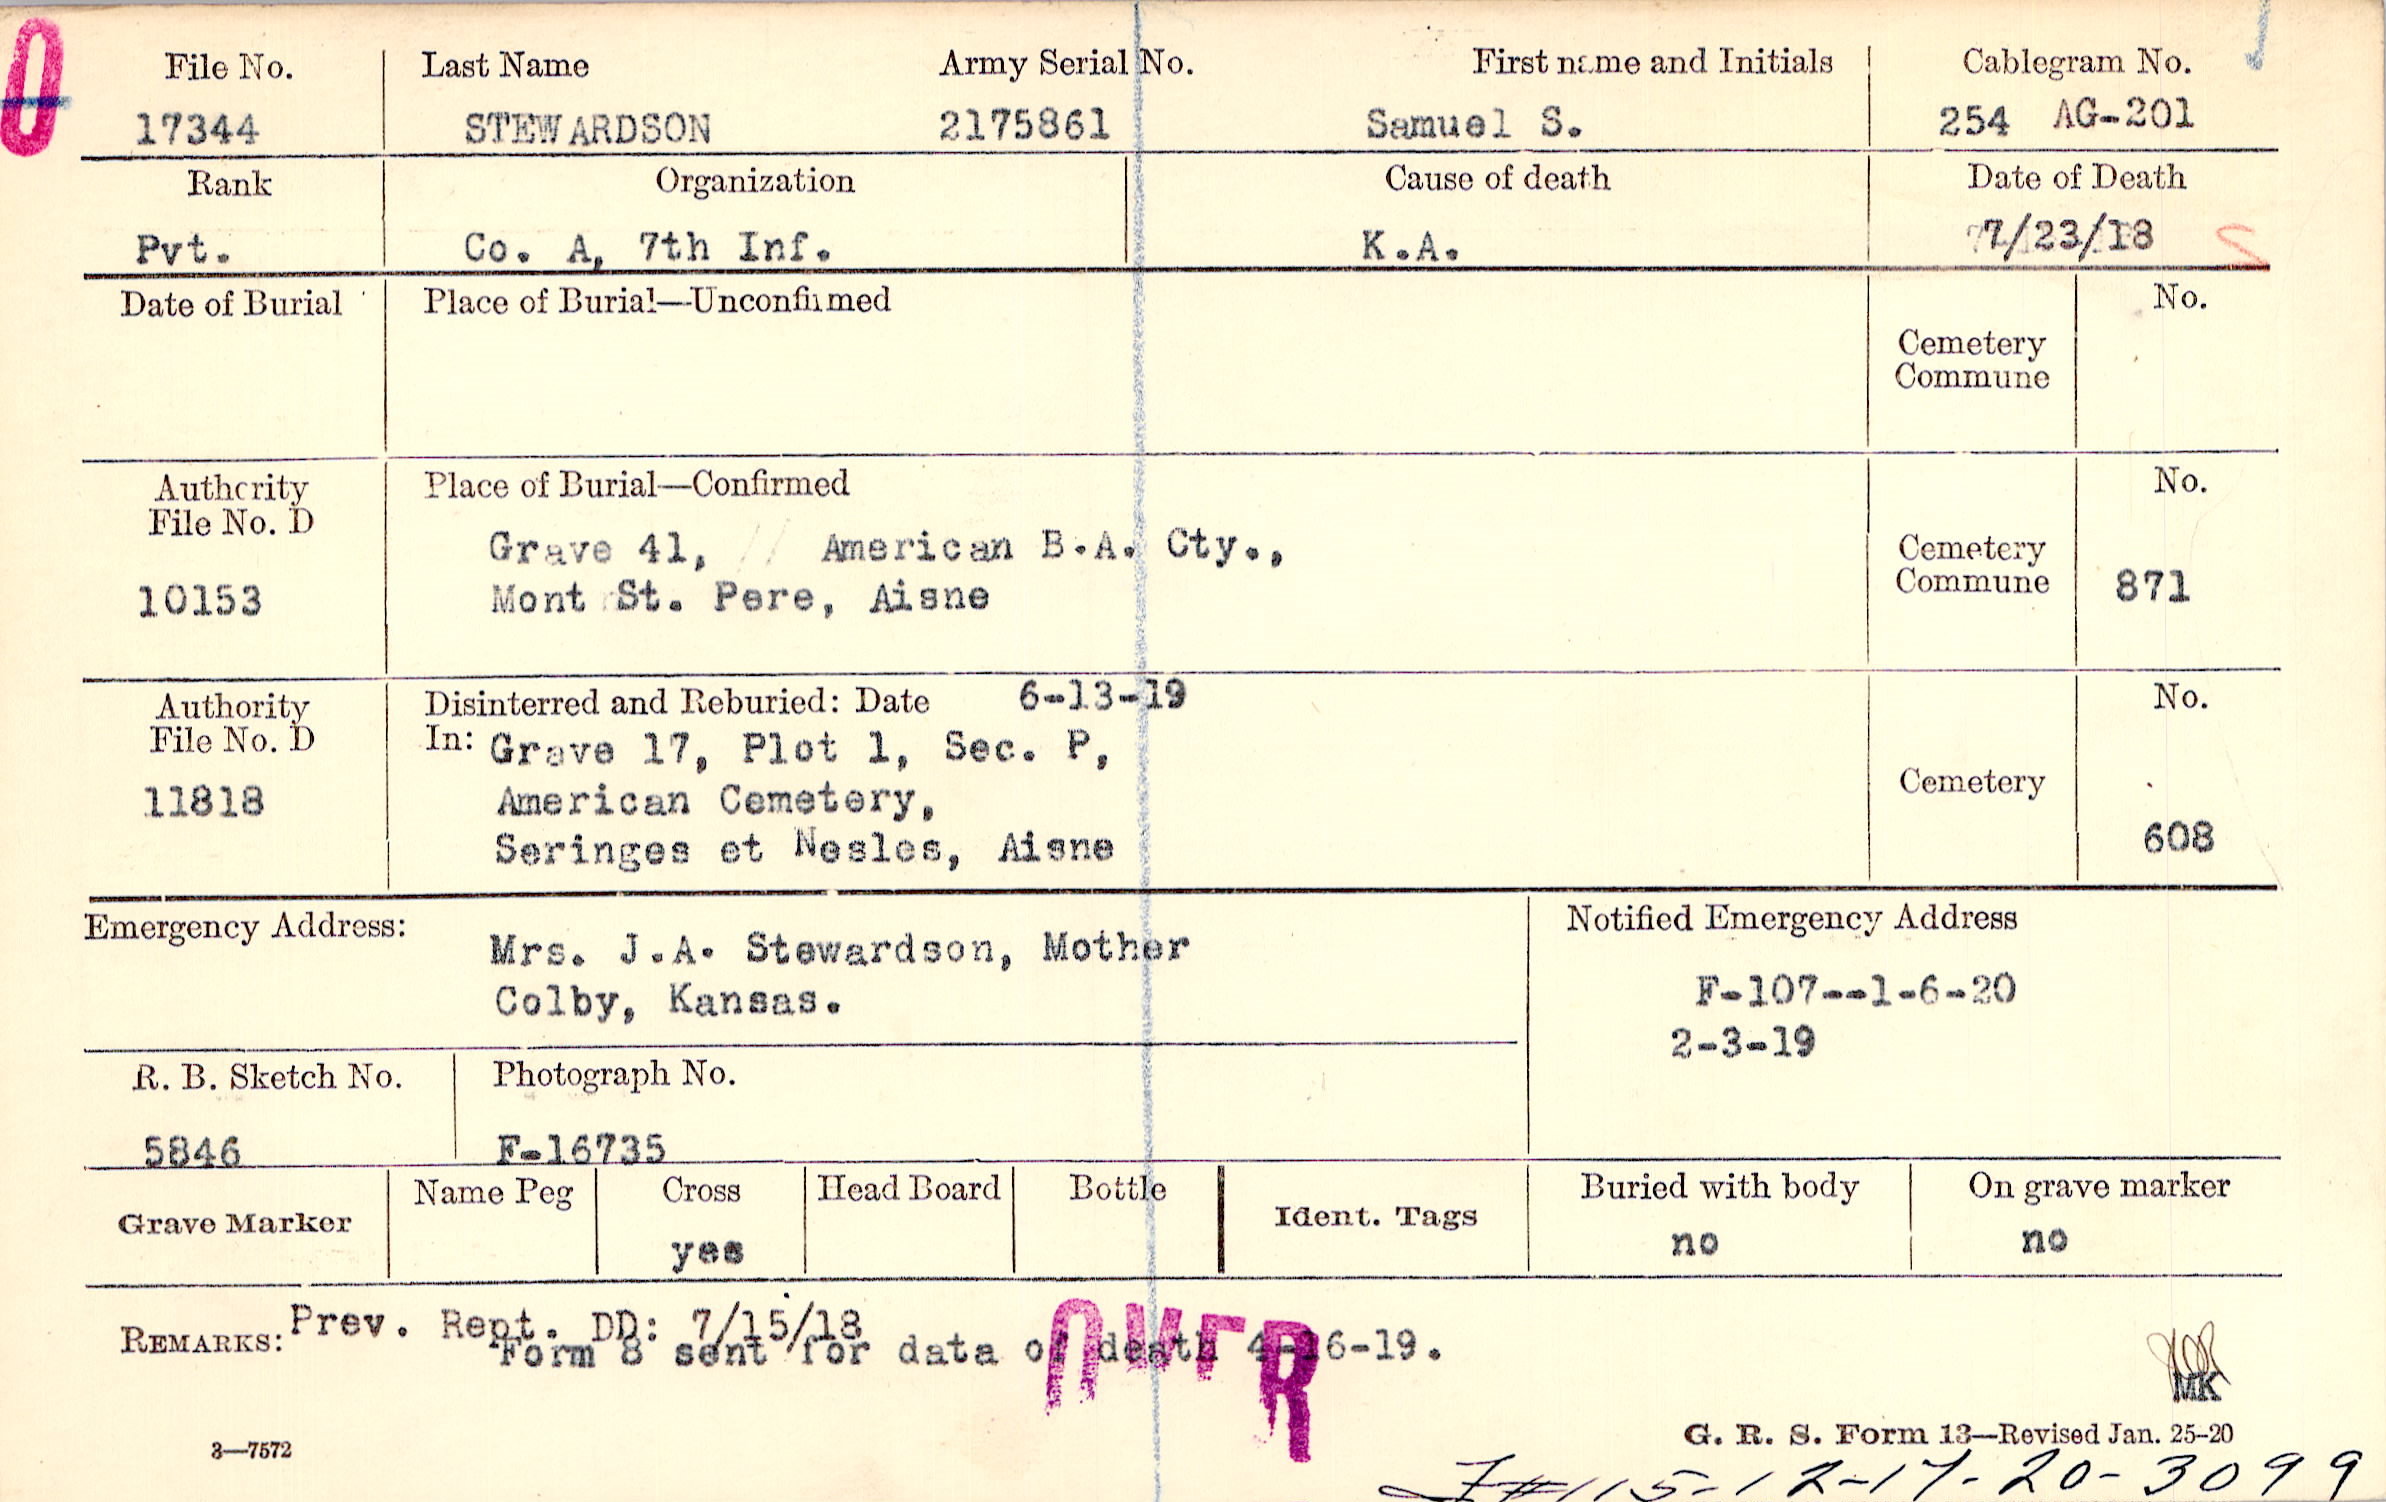 0
File No. Last Name Army Serial No. First name and Initials Cablegram No.
17344 STEWARDSON 2175861 Samuel S. 254 AG-201
Rank Organization Cause of death Date of Death
Pvt. Co. A, 7th Inf. K.A. 7/23/18
Date of Burial Place of Burial—Unconfirmed No.
Cemetery
Commune
Authority Place of Burial—Confirmed No.
File No. D
Grave 41, American B.A. Cty., Cemetery
10153 Mont St. Pere, Aisne Commune 871
Authority Disinterred and Reburied: Date 6-13-19 No.
File No. D In: Grave 17, Plot 1, Sec. P,
11818 American Cemetery, Cemetery
Seringes et Nesles, Aisne 608
Emergency Address: Notified Emergency Address
Mrs. J.A. Stewardson, Mother
Colby, Kansas. F-107--1-6-20
2-3-19
R. B. Sketch No. Photograph No.
5846 F-16735
Grave Marker Name Peg Cross Head Board Bottle Ident. Tags Buried with body On grave marker
yes no no
REMARKS: Prev. Rept. DD: 7/15/18
Form 8 sent for data of death 4-16-19.
R
MK
3—7572 G. R. S. Form 13—Revised Jan. 25-20
#115-12-17-20-3099